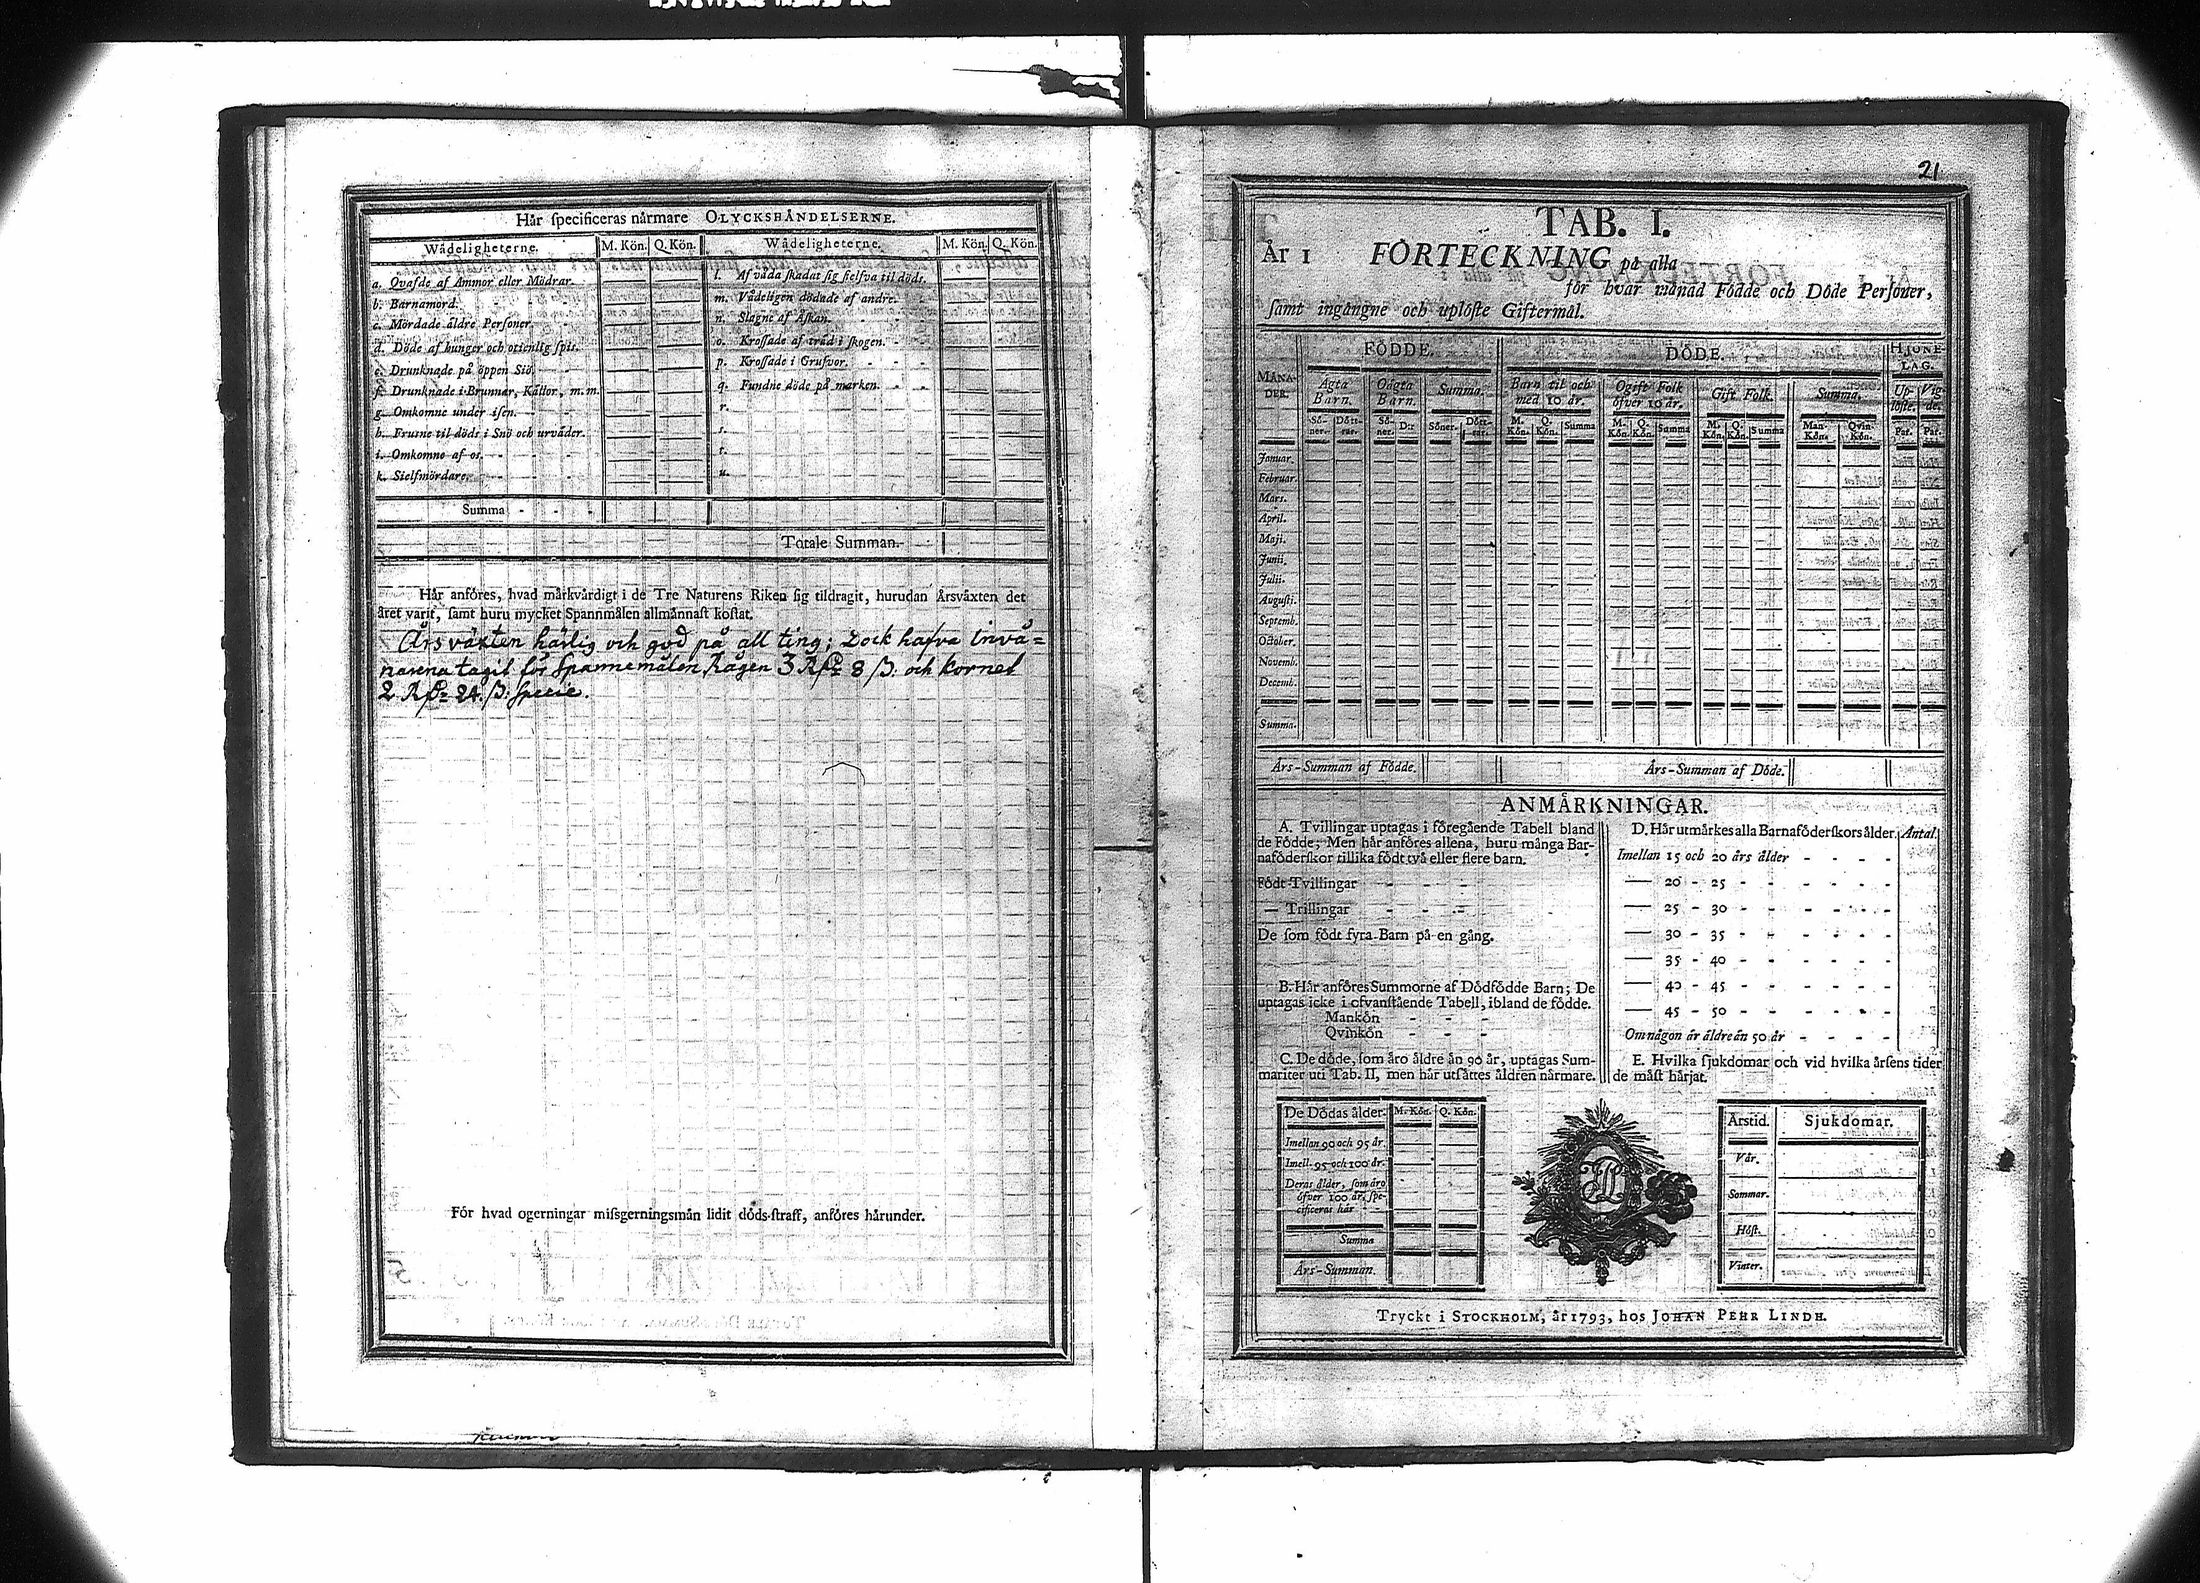 Hår ſpecificeras nårmare OLYCKSHÅNDELSERNE.
Wådeligheterne. M. Kön. Q. Kön. Wådeligheterne. M. Kön. Q. Kön.
a. Qvafde af Ammor eller Mödrar.
b. Barnamord.
c. Mördade äldre Perſoner.
d. Döde af hunger och otienlig ſpis.
e. Drunknade på öppen Siö.
f. Drunknade i Brunnar, Kållor, m. m.
g. Omkomne under iſen.
h. Fruſne til döds i Snö och urväder.
i. Omkomne af os.
k. Sielfmördare.
l. Af våda ſkadat ſig ſielfva til döds.
m. Vådeligen dödade af andre.
n. Slagne af Åſkan.
o. Kroſſade af träd i ſkogen.
p. Kroſſade i Grufvor.
q. Fundne döde på marken.
r.
s.
t.
u.
Summa
Totale Summan.
Hår anföres, hvad mårkvårdigt i de Tre Naturens Riken ſig tildragit, hurudan Årsvåxten det
året varit, ſamt huru mycket Spannmålen allmånnaſt koſtat.
Års växten härlig och god på all ting; Dock hafva Invå=
narena tagit för Spannemålen, Rågen 3 Rſdr 8 ß: och Kornet
2 Rſdr 24. ß: Specie.
Fór hvad ogerningar miſsgerningsmån lidit dóds-ſtraff, anfóres hårunder.
21
TAB. I.
År 1 FÖRTECKNING på alla
för hvar månad Födde och Döde Perſoner,
ſamt ingångne och uplöſte Giftermål.
MÅNA-
DER.
FÖDDE. DÖDE. HJONE-
LAG.
Ägta
Barn. Oägta
Barn. Summa. Barn til och
med 10 år. Ogift Folk
öfver 10 år. Gift Folk. Summa. Up-
löſte. Vig-
de.
Sö-
ner. Dött-
rar. Sö-
ner. D:r Söner. Dött-
rar. M.
Kön. Q.
Kön. Summa M.
Kön. Q.
Kön. Summa M.
Kön. Q.
Kön. Summa Man-
Kön. Qvin-
Kön. Par. Par.
Januar.
Februar.
Mars.
April.
Maji.
Junii.
Julii.
Auguſti.
Septemb.
October.
Novemb.
Decemb.
Summa.
Års-Summan af Födde. Års-Summan af Döde.
ANMÅRKNINGAR.
A. Tvillingar uptagas i föregående Tabell bland
de Födde; Men hår anföres allena, huru många Bar-
naföderſkor tillika födt två eller flere barn.
Födt Tvillingar
— Trillingar
De ſom födt fyra Barn på en gång.
B. Hår anföres Summorne af Dödfödde Barn; De
uptagas icke i ofvanſtående Tabell, ibland de födde.
Mankön
Qvinkön
C. De döde, ſom åro åldre ån 90 år, uptagas Sum-
mariter uti Tab. II, men hår utſåttes åldren nårmare.
D. Hår utmårkes alla Barnaföderſkors ålder. Antal.
Imellan 15 och 20 års ålder
— 20 - 25
— 25 - 30
— 30 - 35
— 35 - 40
— 40 - 45
— 45 - 50
Om någon är äldre än 50 år
E. Hvilka ſjukdomar och vid hvilka årſens tider
de måſt hårjat.
De Dödas ålder. M. Kön. Q. Kön.
Imellan 90 och 95 år.
Imell. 95 och 100 år.
Deras ålder, ſom äro
öfver 100 år, ſpe-
cificeras här
Summa
Års-Summan.
Årstid. Sjukdomar.
Vår.
Sommar.
Höſt.
Vinter.
Tryckt i STOCKHOLM, år 1793, hos JOHAN PEHR LINDH.